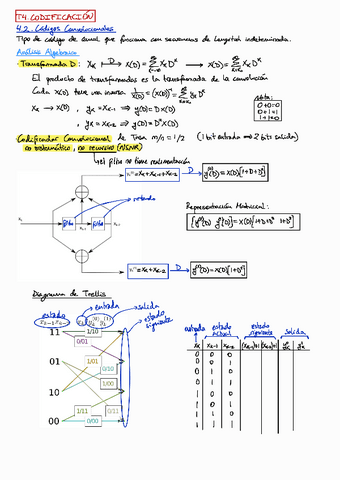 T4. CODIFICACIÓN
4.2. Códigos Convolucionales
Tipo de código de canal que funciona con secuencias de longitud indeterminada.
Análisis Algebraico
- Transformada D: X_k →D X(D) = Σ X_k D^k → X(D) = Σ X_k D^k
El producto de transformadas es la transformada de la convolución
Cada X(D) tiene una inversa
nota:
0+0=0
0+1=1
1+1=0
X_k → X(D), y_k = X_{k-1} ⇒ y(D) = D X(D)
Codificador Convolucional de Tasa m/n = 1/2 (1 bit entrada ⇒ 2 bits salida)
no sistemático, no recursivo (NSNR)
→ el filtro no tiene realimentación
= X_k + X_{k-1} + X_{k-2} →D y(D) = X(D)[1+D+D²]
retardo
X_k
X_{k-1}
X_{k-2}
Representación Matricial:
= X(D)[1+D+D² 1+D²]
= X_k + X_{k-2} →D y(D) = X(D)[1+D²]
Diagrama de Trellis
estado entrada salida
estado siguiente
11 1/10
0/01
01 1/01
0/10
10 1/00
0/11
00 1/11 0/00
entrada estado actual estado siguiente salida
X_k X_{k-1} X_{k-2} (X_{k-1})+1 (X_{k-2})+1
0 0 0
0 0 1
0 1 0
0 1 1
1 0 0
1 0 1
1 1 0
1 1 1